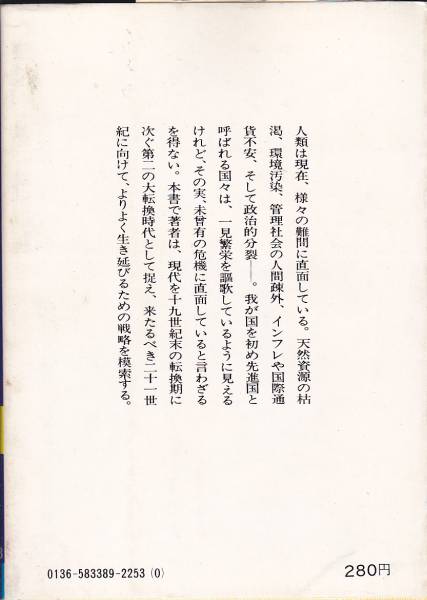 人類は現在、様々の難問に直面している。天然資源の枯
渇、環境汚染、管理社会の人間疎外、インフレや国際通
貨不安、そして政治的分裂――。我が国を初め先進国と
呼ばれる国々は、一見繁栄を謳歌しているように見える
けれど、その実、未曾有の危機に直面していると言わざる
を得ない。本書で著者は、現代を十九世紀末の転換期に
次ぐ第二の大転換時代として捉え、来たるべき二十一世
紀に向けて、よりよく生き延びるための戦略を模索する。
0136-583389-2253 (0)
280円